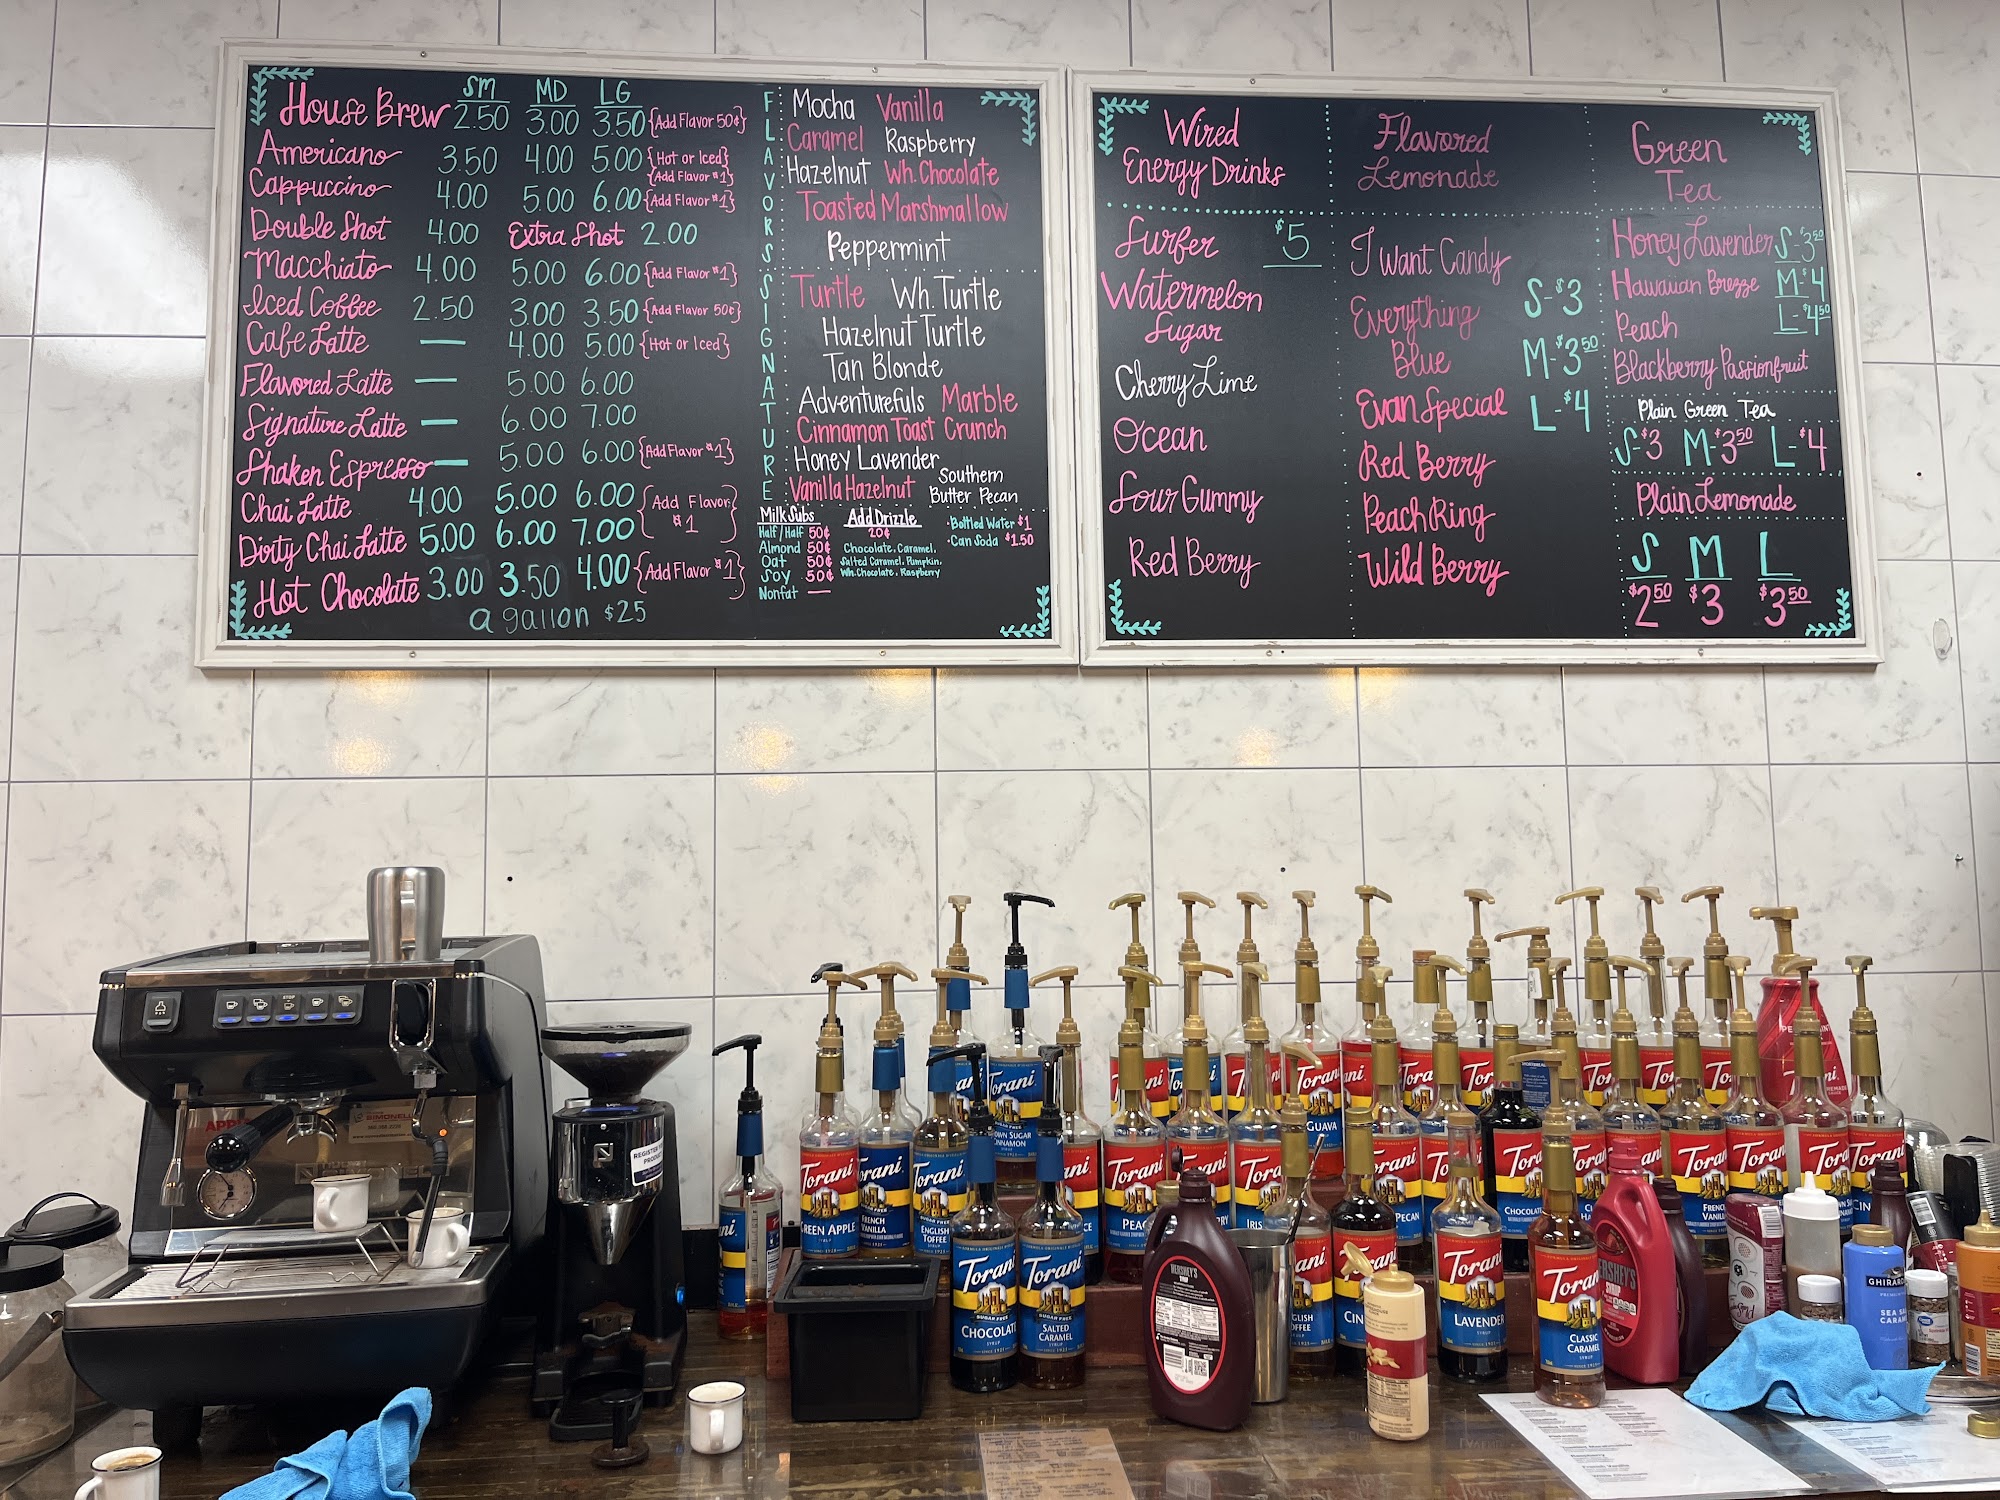 SM MD LG
House Brew 2.50 3.00 3.50 {Add Flavor 50¢}
Americano 3.50 4.00 5.00 {Hot or Iced}
{Add Flavor $1}
Cappuccino 4.00 5.00 6.00 {Add Flavor $1}
Double Shot 4.00 Extra Shot 2.00
Macchiato 4.00 5.00 6.00 {Add Flavor $1}
Iced Coffee 2.50 3.00 3.50 {Add Flavor 50¢}
Cafe Latte — 4.00 5.00 {Hot or Iced}
Flavored Latte — 5.00 6.00
Signature Latte — 6.00 7.00
Shaken Espresso — 5.00 6.00 {Add Flavor $1}
Chai Latte 4.00 5.00 6.00
Dirty Chai Latte 5.00 6.00 7.00
{Add Flavor $1}
Hot Chocolate 3.00 3.50 4.00 {Add Flavor $1}
a gallon $25
FLAVORS
Mocha Vanilla
Caramel Raspberry
Hazelnut Wh. Chocolate
Toasted Marshmallow
Peppermint
SIGNATURE
Turtle Wh. Turtle
Hazelnut Turtle
Tan Blonde
Adventurefuls Marble
Cinnamon Toast Crunch
Honey Lavender
Vanilla Hazelnut
Southern
Butter Pecan
Milk Subs
Half/Half 50¢
Almond 50¢
Oat 50¢
Soy 50¢
Nonfat —
Add Drizzle
20¢
Chocolate, Caramel,
Salted Caramel, Pumpkin,
Wh. Chocolate, Raspberry
·Bottled Water $1
·Can Soda $1.50
Wired
Energy Drinks
Surfer $5
Watermelon
Sugar
Cherry Lime
Ocean
Sour Gummy
Red Berry
Flavored
Lemonade
I Want Candy
Everything
Blue
Evan Special
Red Berry
Peach Ring
Wild Berry
S-$3
M-$3.50
L-$4
Green
Tea
Honey Lavender S-$3.50
Hawaiian Brezze M-$4
Peach L-$4.50
Blackberry Passionfruit
Plain Green Tea
S-$3 M-$3.50 L-$4
Plain Lemonade
S M L
$2.50 $3 $3.50
STOP
REGISTER
Torani
GREEN APPLE
Torani
FRENCH
VANILLA
Torani
SUGAR FREE
ENGLISH
TOFFEE
Torani
SUGAR FREE
CHOCOLATE
Torani
SUGAR FREE
SALTED
CARAMEL
Torani
GUAVA
Torani
PECAN
Torani
LAVENDER
Torani
CLASSIC
CARAMEL
Torani
FRENCH
VANILLA
HERSHEY'S
SYRUP
HERSHEY'S
SYRUP
GHIRARD
SEA SA
CARAM